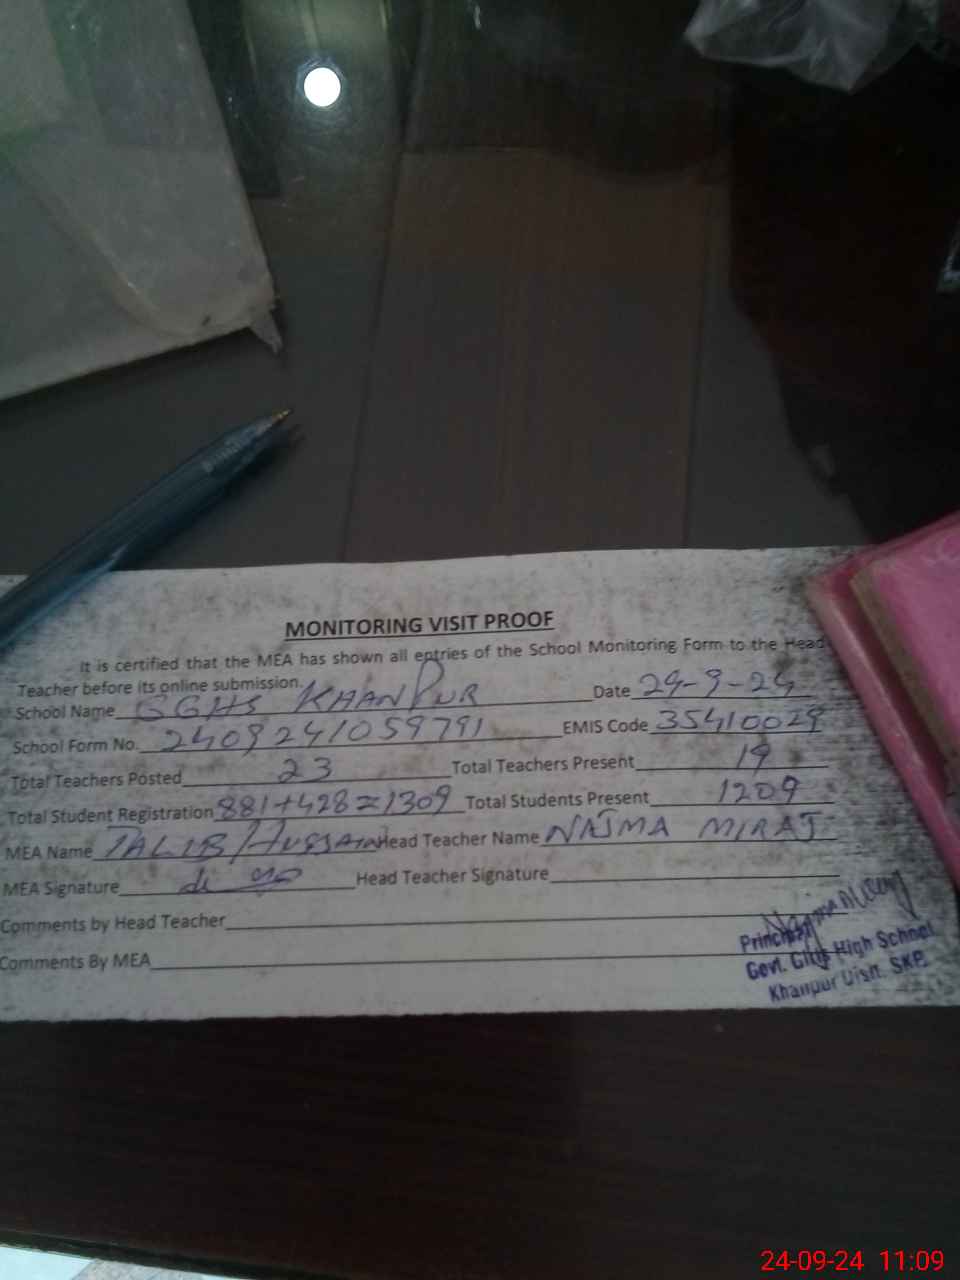 MONITORING VISIT PROOF
It is certified that the MEA has shown all entries of the School Monitoring Form to the Head
Teacher before its online submission.
School Name GGHS KHANPUR Date 24-9-24
School Form No. 2409241059791 EMIS Code 35410029
Total Teachers Posted 23 Total Teachers Present 19
Total Student Registration 881+428=1309 Total Students Present 1209
MEA Name TALIB HUSSAIN Head Teacher Name NAJMA MIRAJ
MEA Signature Head Teacher Signature
Comments by Head Teacher
Comments By MEA
Principal
Govt. Girls High School
Khanpur Distt. SKP.
24-09-24 11:09